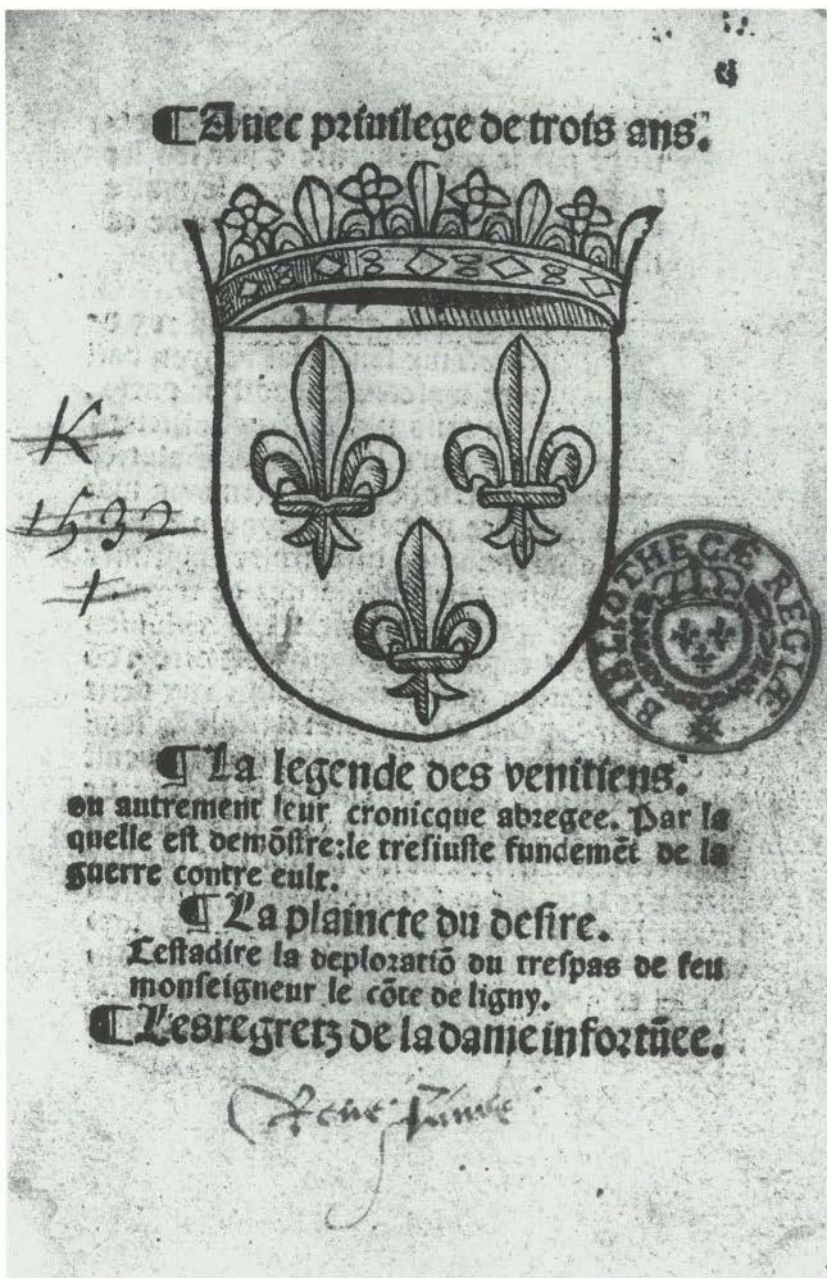 ¶Auec priuilege de trois ans.
K
1532
BIBLIOTHECÆ REGIÆ
¶La legende des venitiens.
ou autrement leur cronicque abregee. Par la
quelle est demõstre:le tresiuste fundemẽt de la
guerre contre eulx.
¶La plaincte du desire.
Cestadire la deploratiõ du trespas de feu
monseigneur le cõte de ligny.
¶Lesregretz de ladame infortũee.